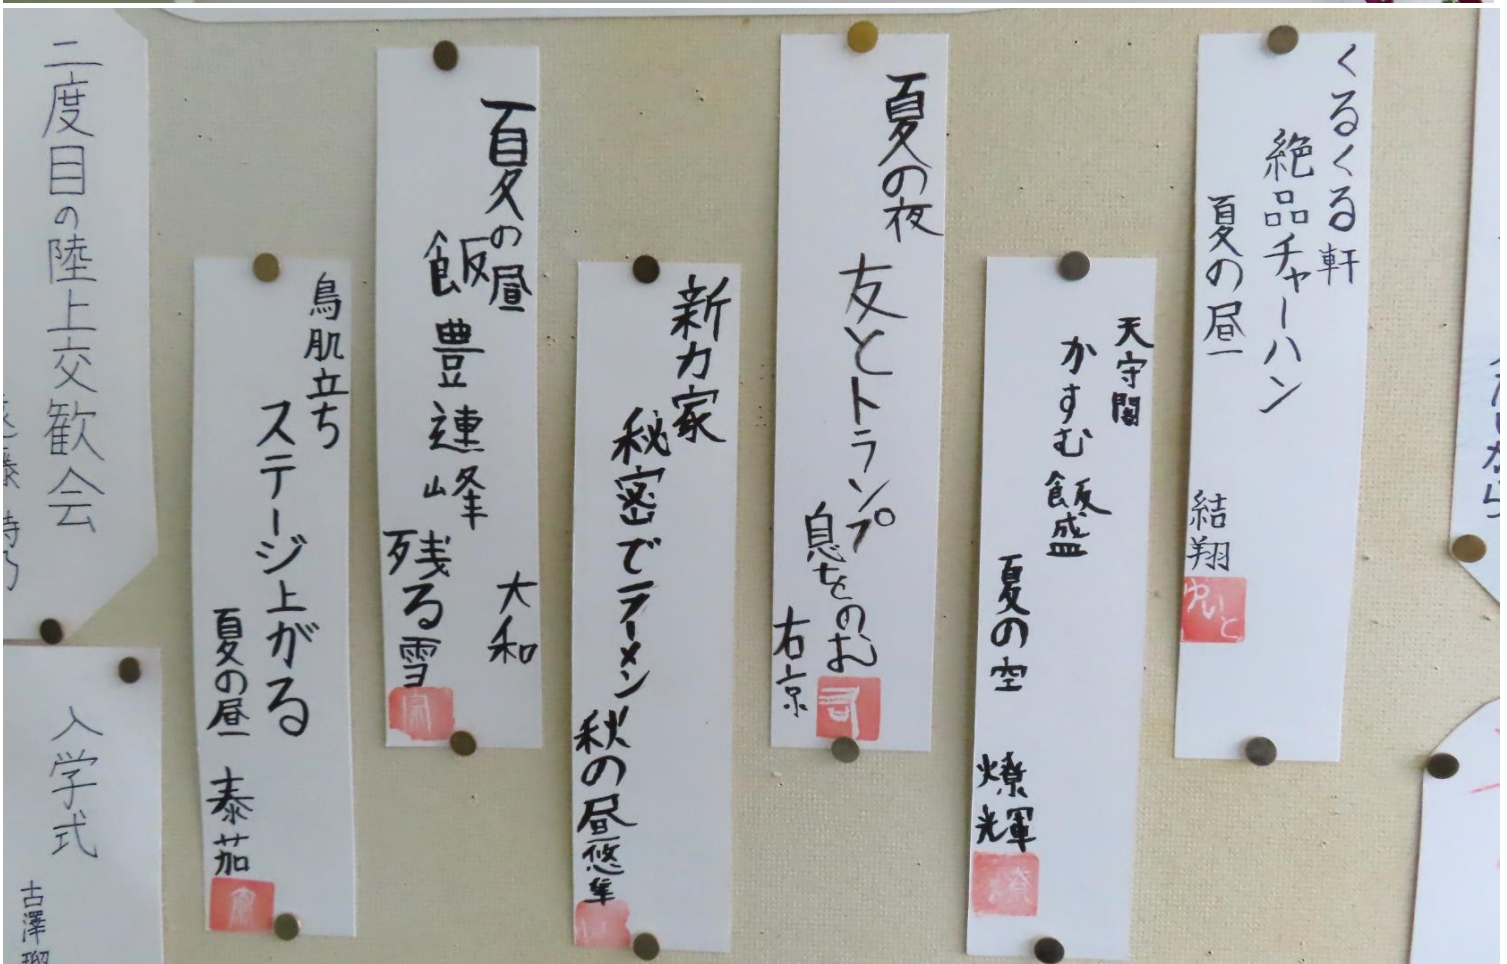 くるくる軒
絶品チャーハン
夏の昼
結翔
ゆいと
天守閣
かすむ飯盛
夏の空
燎輝
夏の夜
友とトランプ
息をのむ
右京
司
新力家
秘密でラーメン
秋の昼
悠隼
夏の昼
飯豊連峰
残る雪
大和
鳥肌立ち
ステージ上がる
夏の昼
泰茄
二度目の陸上交歓会
入学式
古澤瑠